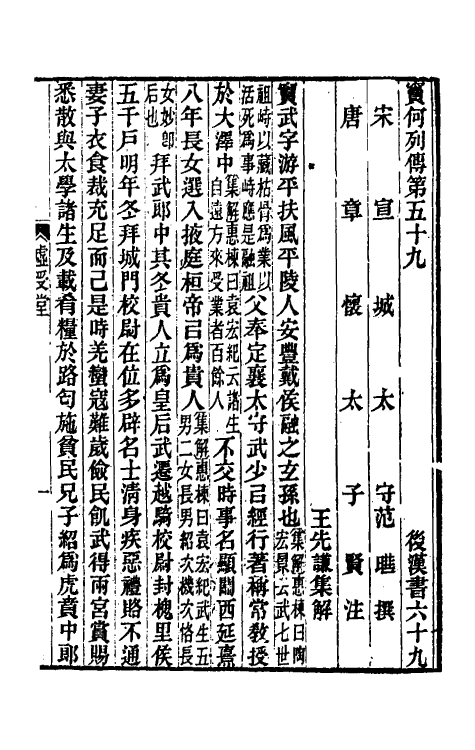 竇何列傳第五十九　後漢書六十九
宋宣城太守范曄撰
唐章懷太子賢注
王先謙集解
竇武字游平扶風平陵人安豐戴侯融之玄孫也集解惠棟曰陶宏景云武七世
祖時以藏枯骨爲業以活死爲事時應是融祖父奉定襄太守武少㠯經行著稱常敎授
於大澤中集解惠棟曰袁宏紀云諸生自遠方來受業者百餘人不交時事名顯關西延熹
八年長女選入掖庭桓帝㠯爲貴人集解惠棟曰袁宏紀武生五男二女長男紹次機次恪長
女妙卽后也拜武郎中其冬貴人立爲皇后武遷越騎校尉封槐里侯
五千戶明年冬拜城門校尉在位多辟名士清身疾惡禮賂不通
妻子衣食裁充足而已是時羌蠻寇難歲儉民飢武得兩宮賞賜
悉散與太學諸生及載肴糧於路匄施貧民兄子紹爲虎賁中郎
虛受堂
一